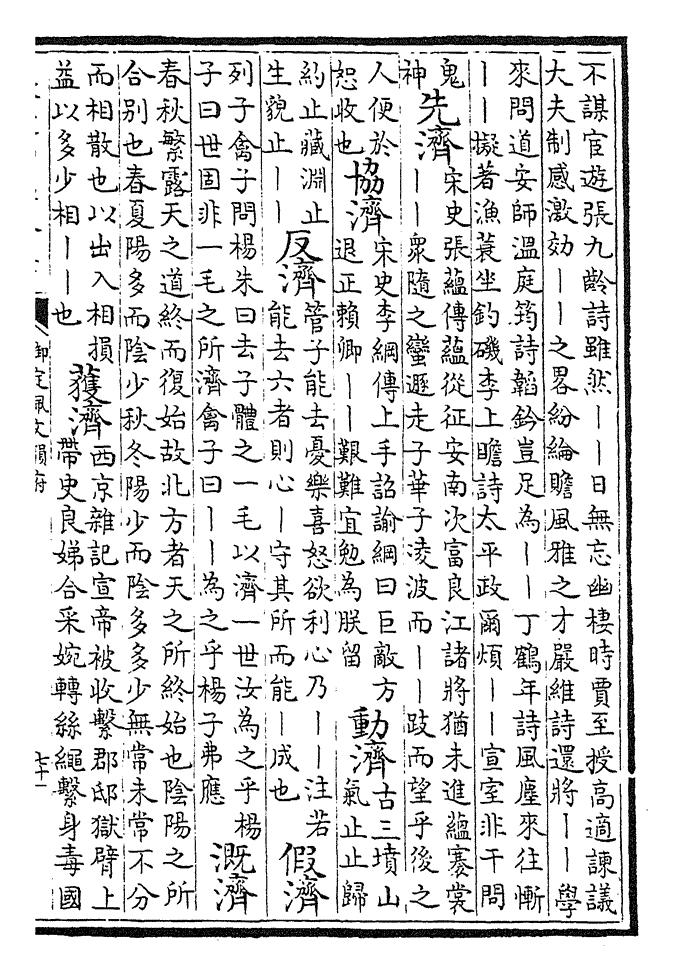 不謀宦遊張九齡詩雖然丨丨日無忘幽棲時賈至授高適諫議
大夫制感激効丨丨之畧紛綸贍風雅之才嚴維詩還將丨丨學
來問道安師溫庭筠詩韜鈐豈足為丨丨丁鶴年詩風塵來往慚
丨丨擬著漁蓑坐釣磯李上瞻詩太平政爾煩丨丨宣室非干問
鬼
神
先濟
宋史張蘊傳蘊從征安南次富良江諸將猶未進蘊褰裳
丨丨衆隨之蠻遯走子華子凌波而丨丨跂而望乎後之
人便於
恕收也
協濟
宋史李綱傳上手詔諭綱曰巨敵方
退正賴卿丨丨艱難宜勉為朕留
動濟
古三墳山
氣止止歸
約止藏淵止
生貌止丨丨
反濟
管子能去憂樂喜怒欲利心乃丨丨注若
能去六者則心丨守其所而能丨成也
假濟
列子禽子問楊朱曰去子體之一毛以濟一世汝為之乎楊
子曰世固非一毛之所濟禽子曰丨丨為之乎楊子弗應
溉濟
春秋繁露天之道終而復始故北方者天之所終始也陰陽之所
合别也春夏陽多而陰少秋冬陽少而陰多多少無常未常不分
而相散也以出入相損
益以多少相丨丨也
獲濟
西京雜記宣帝被收繫郡邸獄臂上
帶史良娣合采婉轉絲繩繫身毒國
御定佩文韻府
七十一